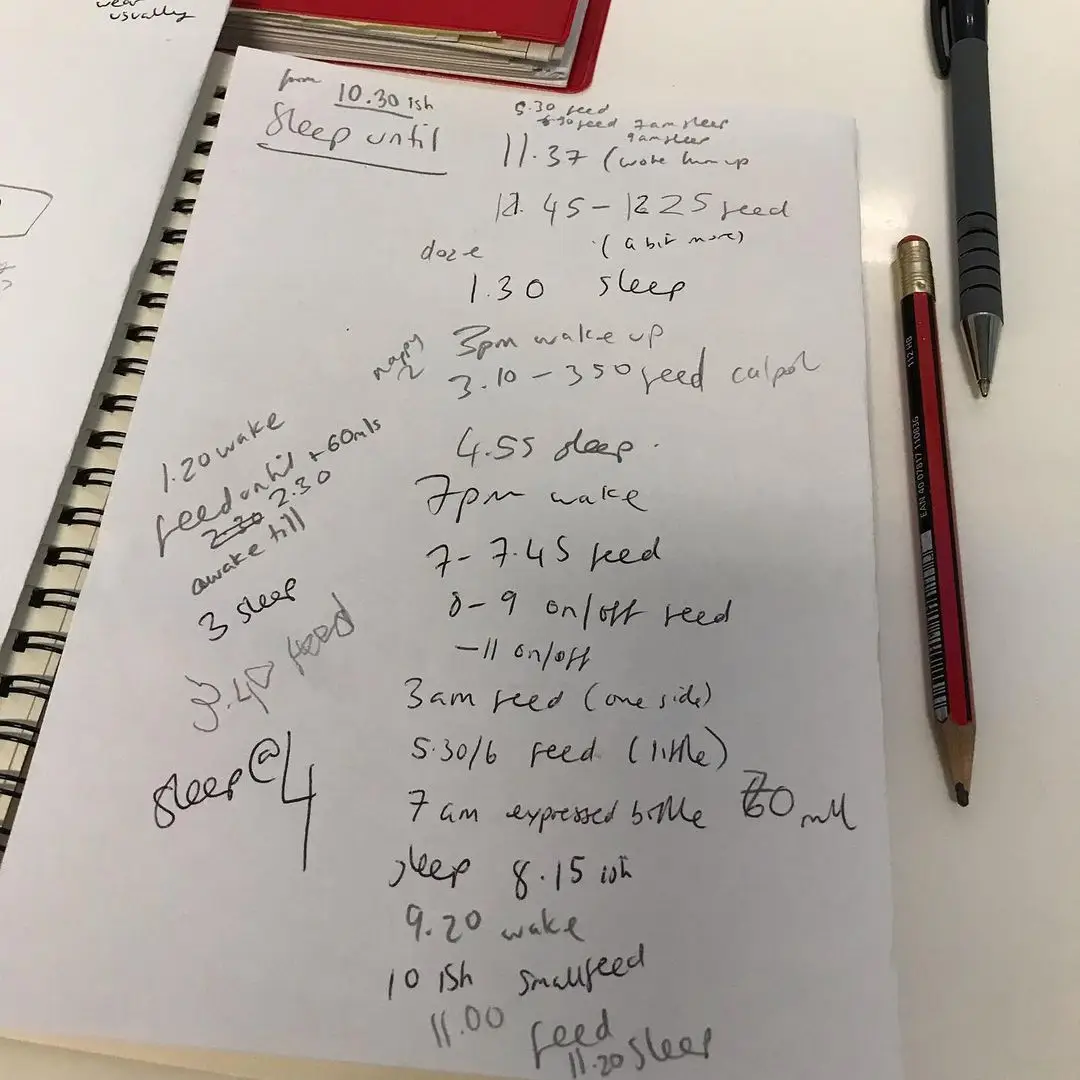 wear
usually
from 10.30 ish
Sleep until
5.30 feed
feed 7am sleep
9am sleep
11.37 (woke him up
12.45 - 1225 feed
(a bit more)
doze
1.30 sleep
3pm wake up
nappy
2
3.10 - 350 feed calpol
4.55 sleep.
7pm wake
7 - 7.45 feed
8 - 9 on/off feed
- 11 on/off
3am feed (one side)
5.30/6 feed (little)
7am expressed bottle 60 ml
sleep 8.15 ish
9.20 wake
10 ish small feed
11.00 feed
11.20 sleep
1.20 wake
feed until + 60mls
2.30 2.30
awake till
3 sleep
3.40 feed
sleep @ 4
112 HB
EAN 40 07817 110835